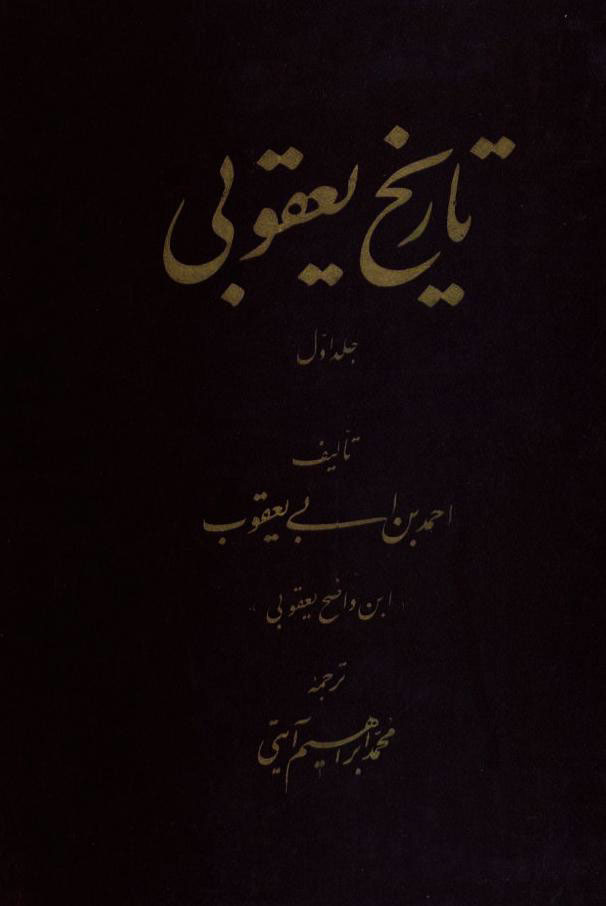 تاریخ یعقوبی
جلد اول
تألیف
احمد بن ابی یعقوب
«ابن واضح یعقوبی»
ترجمهٔ
محمد ابراهیم آیتی